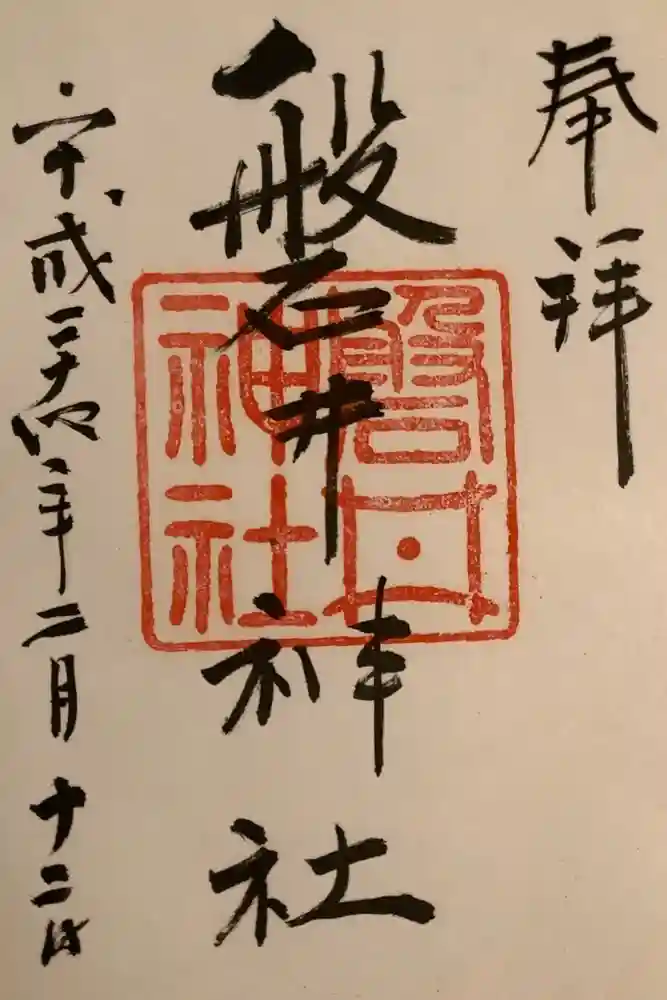 奉拝
磐井神社
平成二十四年二月十二日
磐井
神社